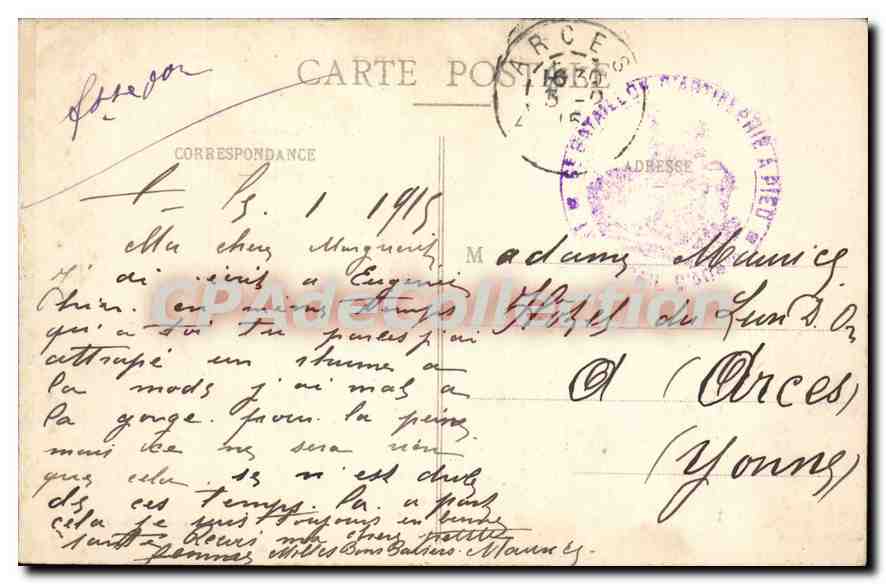 CARTE POSTALE
ARCES
CORRESPONDANCE
ADRESSE
BATAILLON D'ARTILLERIE A PIED
15. 1 1915
Ma chere Marguerite
j'ai écrit a Eugenie
hier. en meme temps
qu'a toi tu parles j'ai
attrapé un rhume a
la mode j'ai mal a
la gorge. pour la peine
mais ce ne sera rien
que cela. se n'est drole
de ces temps. la. a part
cela je suis toujours en bonne
santé ma chere petite
femme Milles Bons Baisers. Maurice.
Madame Maurice
Hotel du Lion D. Or
A (Arces)
(Yonne)
CPAdeCollection